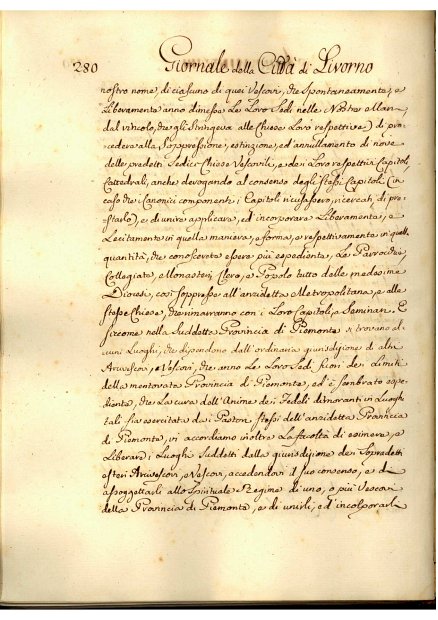 280 Giornale della Città di Livorno
nostro nome, di ciascuno di quei Vescovi, che spontaneamente, e
Liberamente anno dimesse Le Loro Sedi nelle Nostre Mani
dal vincolo, che gli stringeva alle Chiese Loro respettive) di pro-
cedere alla soppressione, estinzione, ed annullamento di nove
delle predette Sedici Chiese Vescovili, e dei Loro respettivi Capitoli
Cattedrali, anche derogando al consenso degli stessi Capitoli (in
caso che i Canonici componenti i Capitoli ricusassero, ricercati, di pre-
starlo), e di unire, applicare, ed incorporare Liberamente, e
Lecitamente in quella maniera, e forma, e respettivamente in quella
quantità, che conoscerete essere più espediente, Le Parrocchie,
Collegiate, e Monasteri, Clero, e Popolo tutto delle medesime
Diocesi, così soppresse all'anzidetta Metropolitana, e alle
stesse Chiese, che rimarranno con i Loro Capitoli, e Seminari. E
siccome nella suddetta Provincia di Piemonte si trovano al-
cuni Luoghi, che dipendono dall'ordinaria giurisdizione di altri
Arcivescovi, e Vescovi, che anno Le Loro Sedi fuori dei Limiti
della mentovata Provincia di Piemonte, ed è sembrato espe-
diente, che La cura dell'Anime dei Fedeli dimoranti in Luoghi
tali sia esercitata dai Pastori stessi dell'anzidetta Provincia
di Piemonte, vi accordiamo inoltre La facoltà di esimere, e
Liberare i Luoghi suddetti dalla giurisdizione dei sopradetti
esteri Arcivescovi, e Vescovi, accedendovi il suo consenso, e di
assoggettarli allo spirituale Regime di uno, o più Vescovi
della Provincia di Piemonte, e di unirli, ed incorporarli